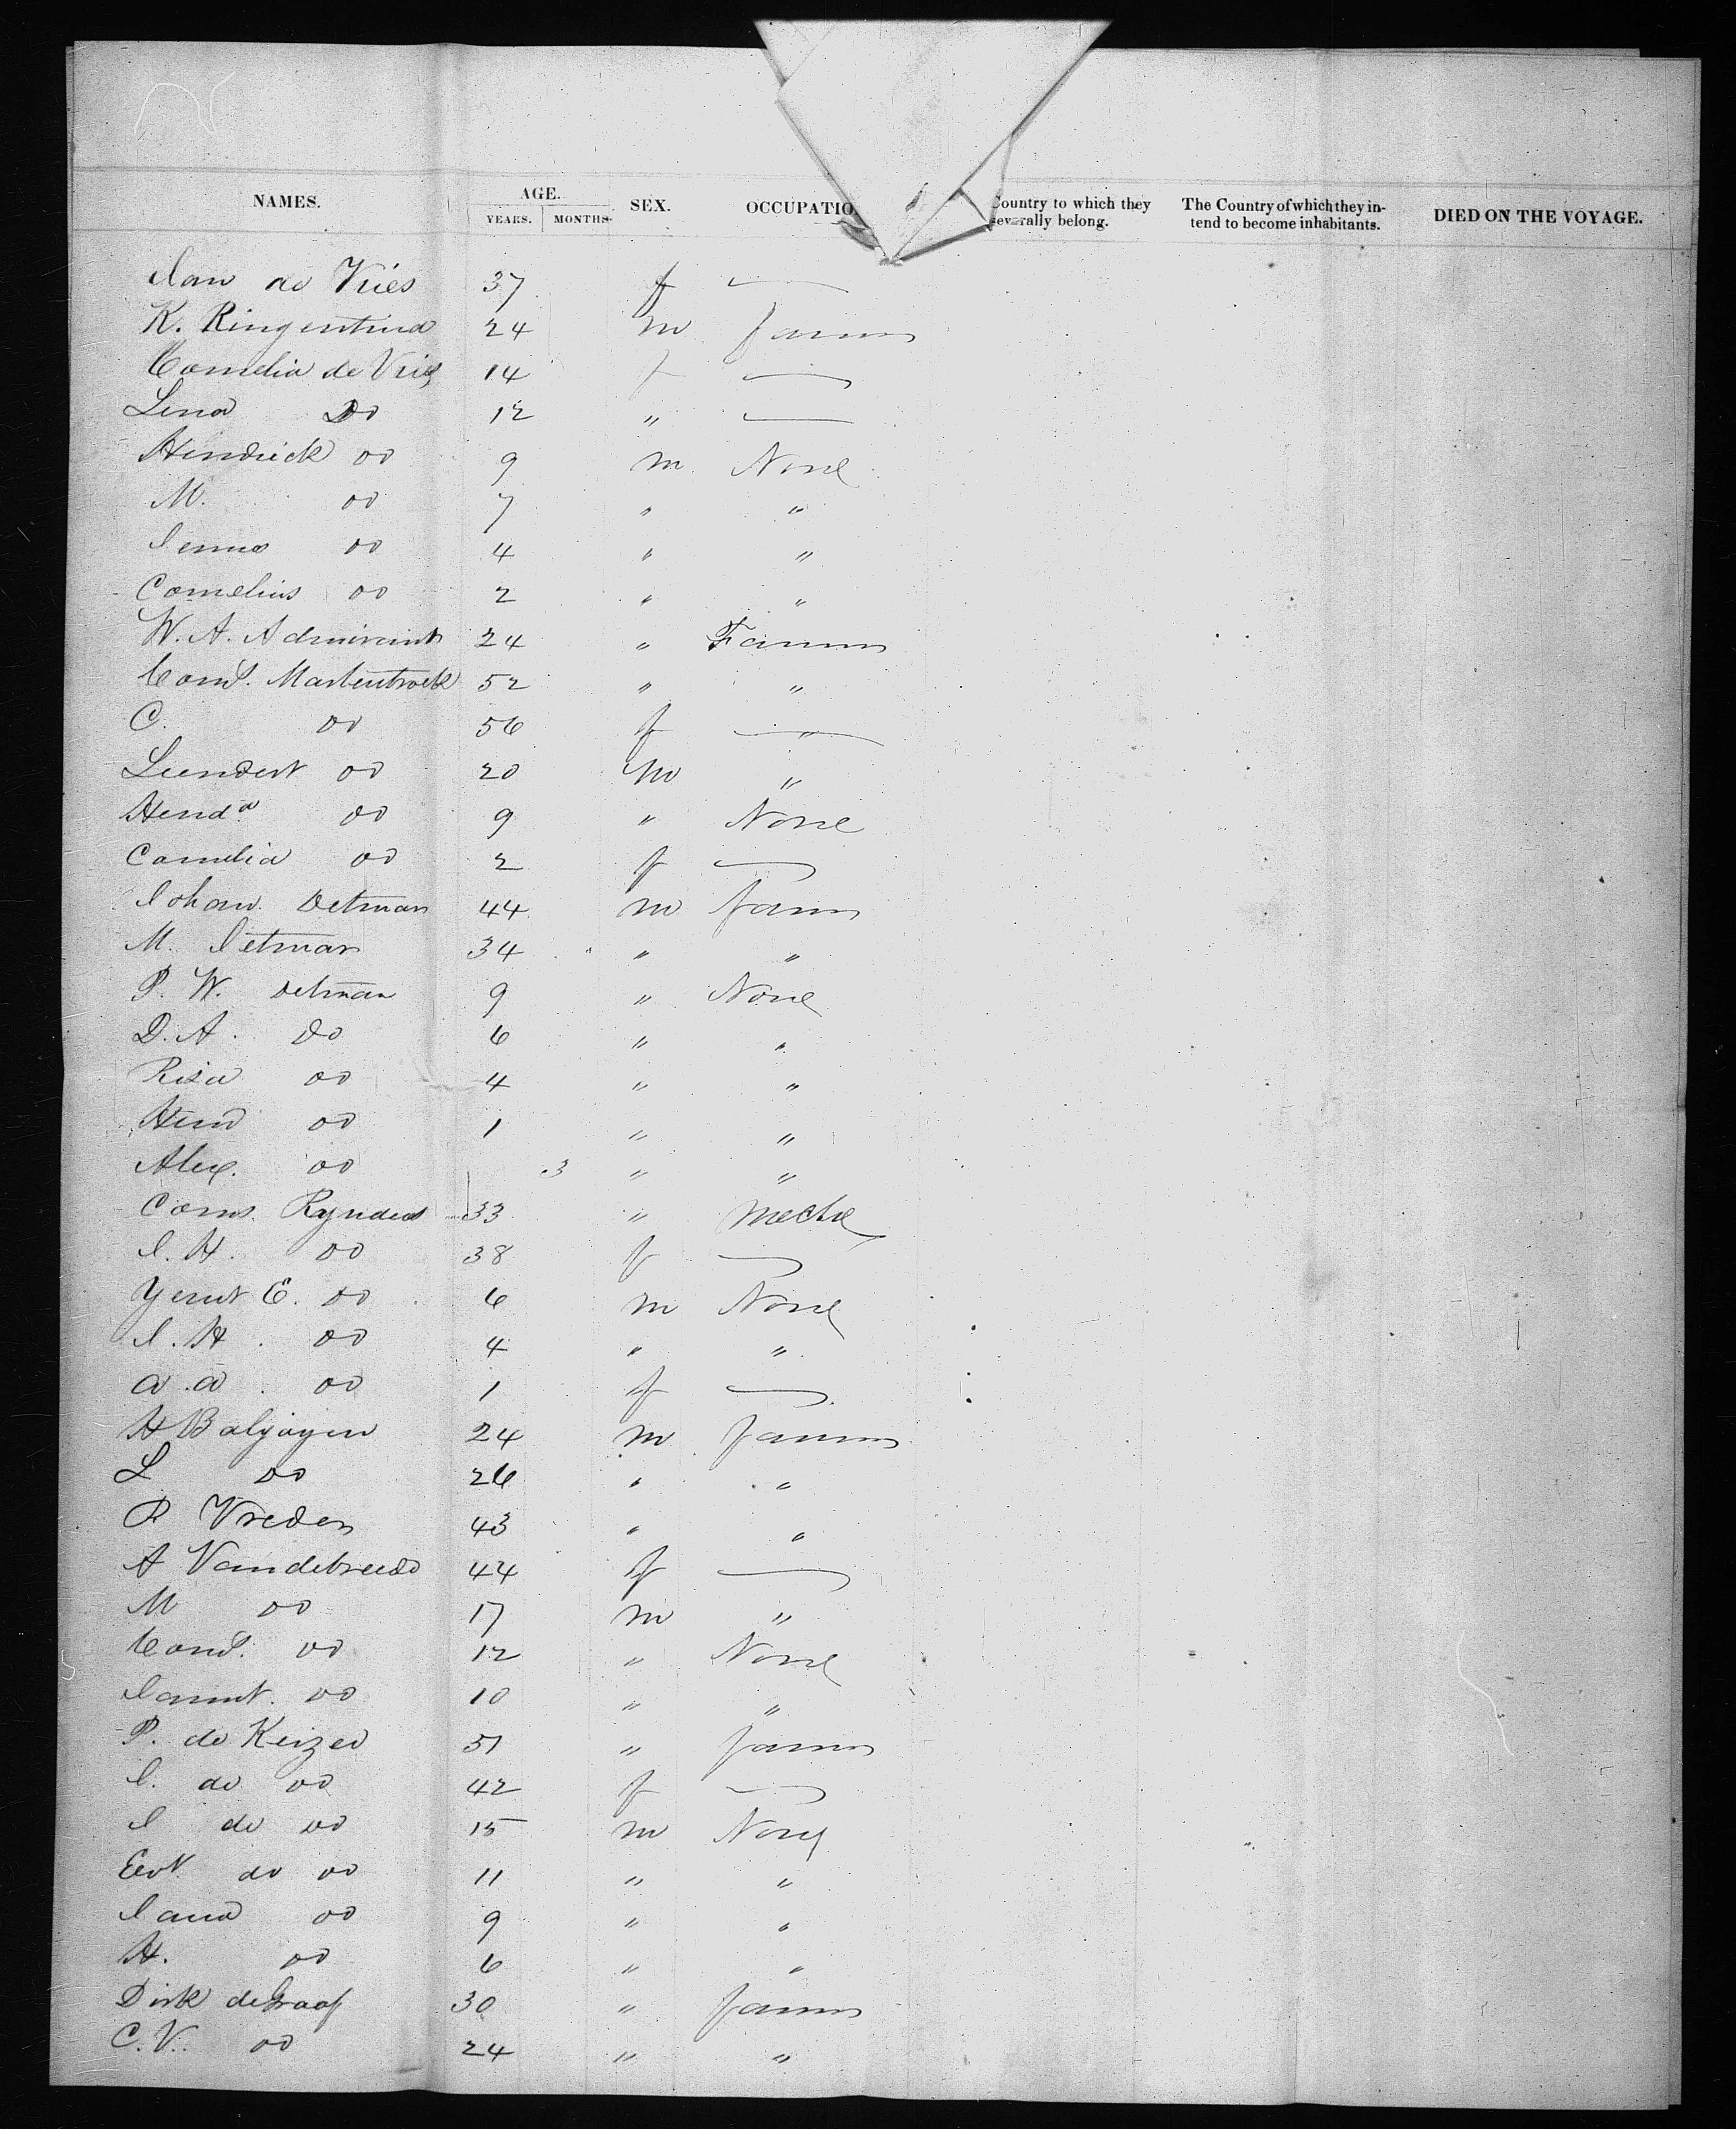 NAMES. AGE. YEARS. MONTHS. SEX. OCCUPATIO Country to which they severally belong. The Country of which they intend to become inhabitants. DIED ON THE VOYAGE.
Jan de Vries 37 f —
K. 24 m farmer
Cornelia de Vries 14 f —
Lena Do 12 " —
Hendrick do 9 m. None
M. do 7 " "
do 4 " "
Cornelius do 2 " "
W. A. 24 " Farmer
Corns. 52 " "
C. do 56 f — "
Leendert do 20 m "
Henda. do 9 " None
Cornelia do 2 f —
Johan Detman 44 m farm
M. Detman 34 " "
P. W. Detman 9 " None
D. A. Do 6 " "
Risa do 4 " "
Hend do 1 " "
Alex. do 3 " "
Corns. Rynders 33 " Mechc
J. H. do 38 f —
E. do 6 m None
J. H. do 4 " "
A. A. do 1 f —
H 24 m farmer
L do 26 " "
P Vreden 43 " "
A 44 f —
M do 17 m "
Corns. do 12 " None
do 10 " "
P. de Keizer 51 " farmer
J. de do 42 f —
J de do 15 m None
Evt. de do 11 " "
Jana do 9 " "
H. do 6 " "
Dirk deGraaf 30 " farmer
C. V. do 24 " "